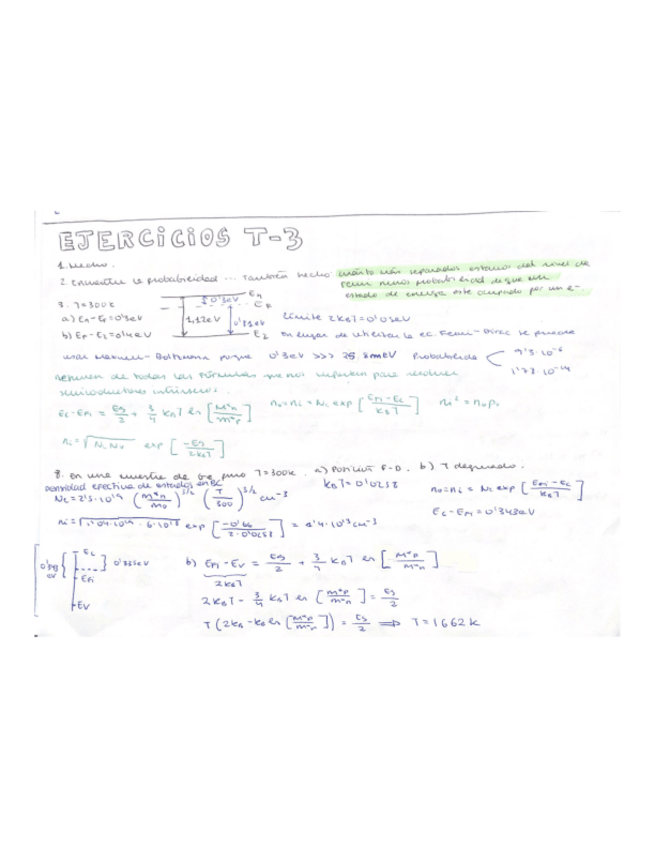 EJERCICIOS T-3
1. Hecho.
2. Encuentre la probabilidad ... También hecho. cuanto más separados estamos del nivel de
Fermi menos probabilidad de que un
estado de energía esté ocupado por un e-.
3. T=300K
a) E1-EF=0'3eV
b) EF-E2=0'4eV
0'3eV E1
EF
1,12eV 0'82eV
E2
límite 2KBT=0'05eV
en lugar de utilizar la ec. Fermi-Dirac se puede
usar Maxwell-Boltzmann porque 0'3eV >>> 25 8meV Probabilidad 9'3·10^-6
1'78·10^-14
resumen de todas las fórmulas que nos importan para resolver
semiconductores intrínsecos.
Ec-EFi = Eg/2 + 3/4 KBT ln [m*n/m*p] n0=ni=Nc exp [EFi-Ec/KBT] ni²=n0p0
ni=√NcNv exp [-Eg/2KBT]
8. En una muestra de Ge puro T=300K. a) Posición F-D. b) T degenerado.
Densidad efectiva de estados en BC
Nc=2'5·10^19 (m*n/m0)^3/2 (T/300)^3/2 cm-3
KBT=0'0258
n0=ni=Nc exp [EFi-Ec/KBT]
ni=√1'04·10^19·6·10^18 exp [-0'66/2·0'0258] = 2'4·10^13 cm-3
Ec-EFi=0'343eV
Ec
0'335eV
EFi
Ev
b) EFi-Ev = Eg/2 + 3/4 KBT ln [m*p/m*n]
2KBT
2KBT - 3/4 KBT ln [m*p/m*n] = Eg/2
T(2KB-KB ln [m*p/m*n]) = Eg/2 ⟹ T=1662K